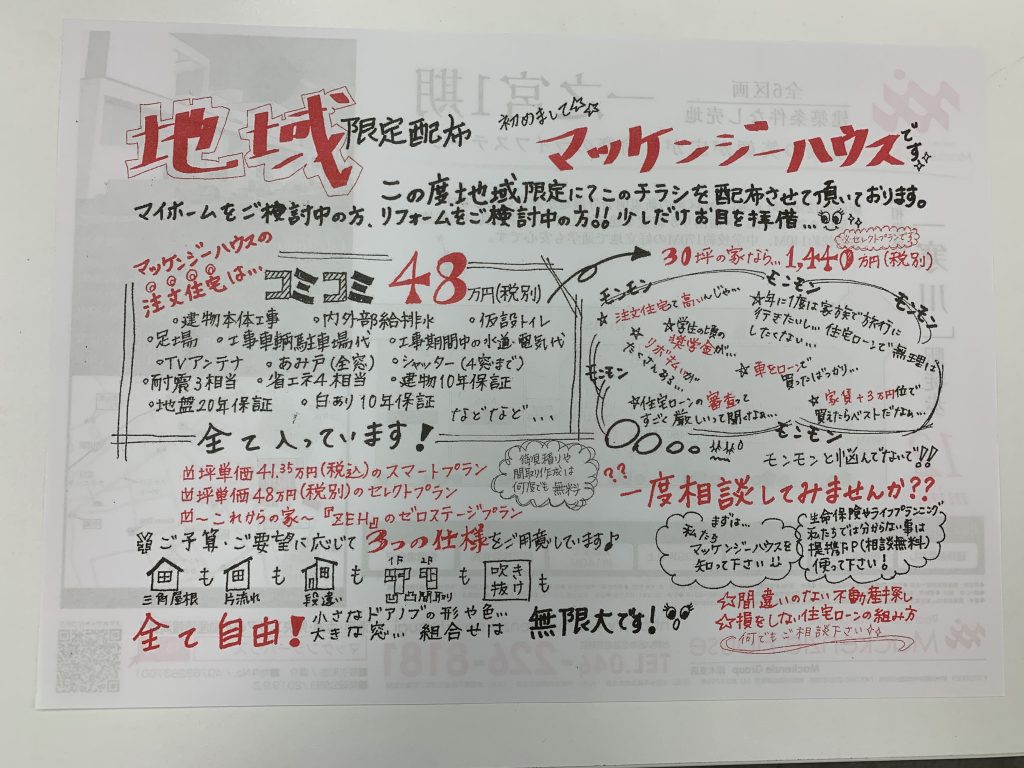 地域限定配布
初めまして☆☆
マッケンジーハウスです
この度地域限定にてこのチラシを配布させて頂いております。
マイホームをご検討中の方、リフォームをご検討中の方!! 少しだけお目を拝借...
マッケンジーハウスの
注文住宅は...
コミコミ48万円(税別)
※セレクトプランです
30坪の家なら... 1,440万円(税別)
○建物本体工事 ○内外部給排水 ○仮設トイレ
○足場 ○工事車輌駐車場代 ○工事期間中の水道・電気代
○TVアンテナ ○あみ戸(全窓) ○シャッター(4窓まで)
○耐震3相当 ○省エネ4相当 ○建物10年保証
○地盤20年保証 ○白あり10年保証
などなど...
全て入っています!
モンモン
モンモン
モンモン
モンモン
モンモン
☆注文住宅って高いんじゃ...
☆学生の頃の
奨学金が...
リボ払いが
たくさんある...
☆住宅ローンの審査って
すごく厳しいって聞けなぁ...
☆年に1度は家族で旅行に
行きたいし... 住宅ローンで無理は
したくない...
☆車をローンで
買ったばっかり...
☆家賃+3万円位で
買えたらベストだなぁ...
モンモンと悩んでないで!!
凸坪単価41.35万円(税込)のスマートプラン
凸坪単価48万円(税別)のセレクトプラン
凸〜これからの家〜『ZEH』のゼロステージプラン
御見積りや
間取り作成は
何度でも無料
ご予算・ご要望に応じて3つの仕様をご用意しています♪
も も も も も
三角屋根 片流れ 段違い 凸凹間取り
1F 2F
吹き
抜け
全て自由!
小さなドアノブの形や色...
大きな窓... 組合せは
無限大です!
??一度相談してみませんか??
まずは...
私たち
マッケンジーハウスを
知って下さい!!
生命保険やライフプランニング
私たちでは分からない事は
提携FP(相談無料)
使って下さい!
☆間違いのない不動産探し
☆損をしない住宅ローンの組み方
何でもご相談下さい☆